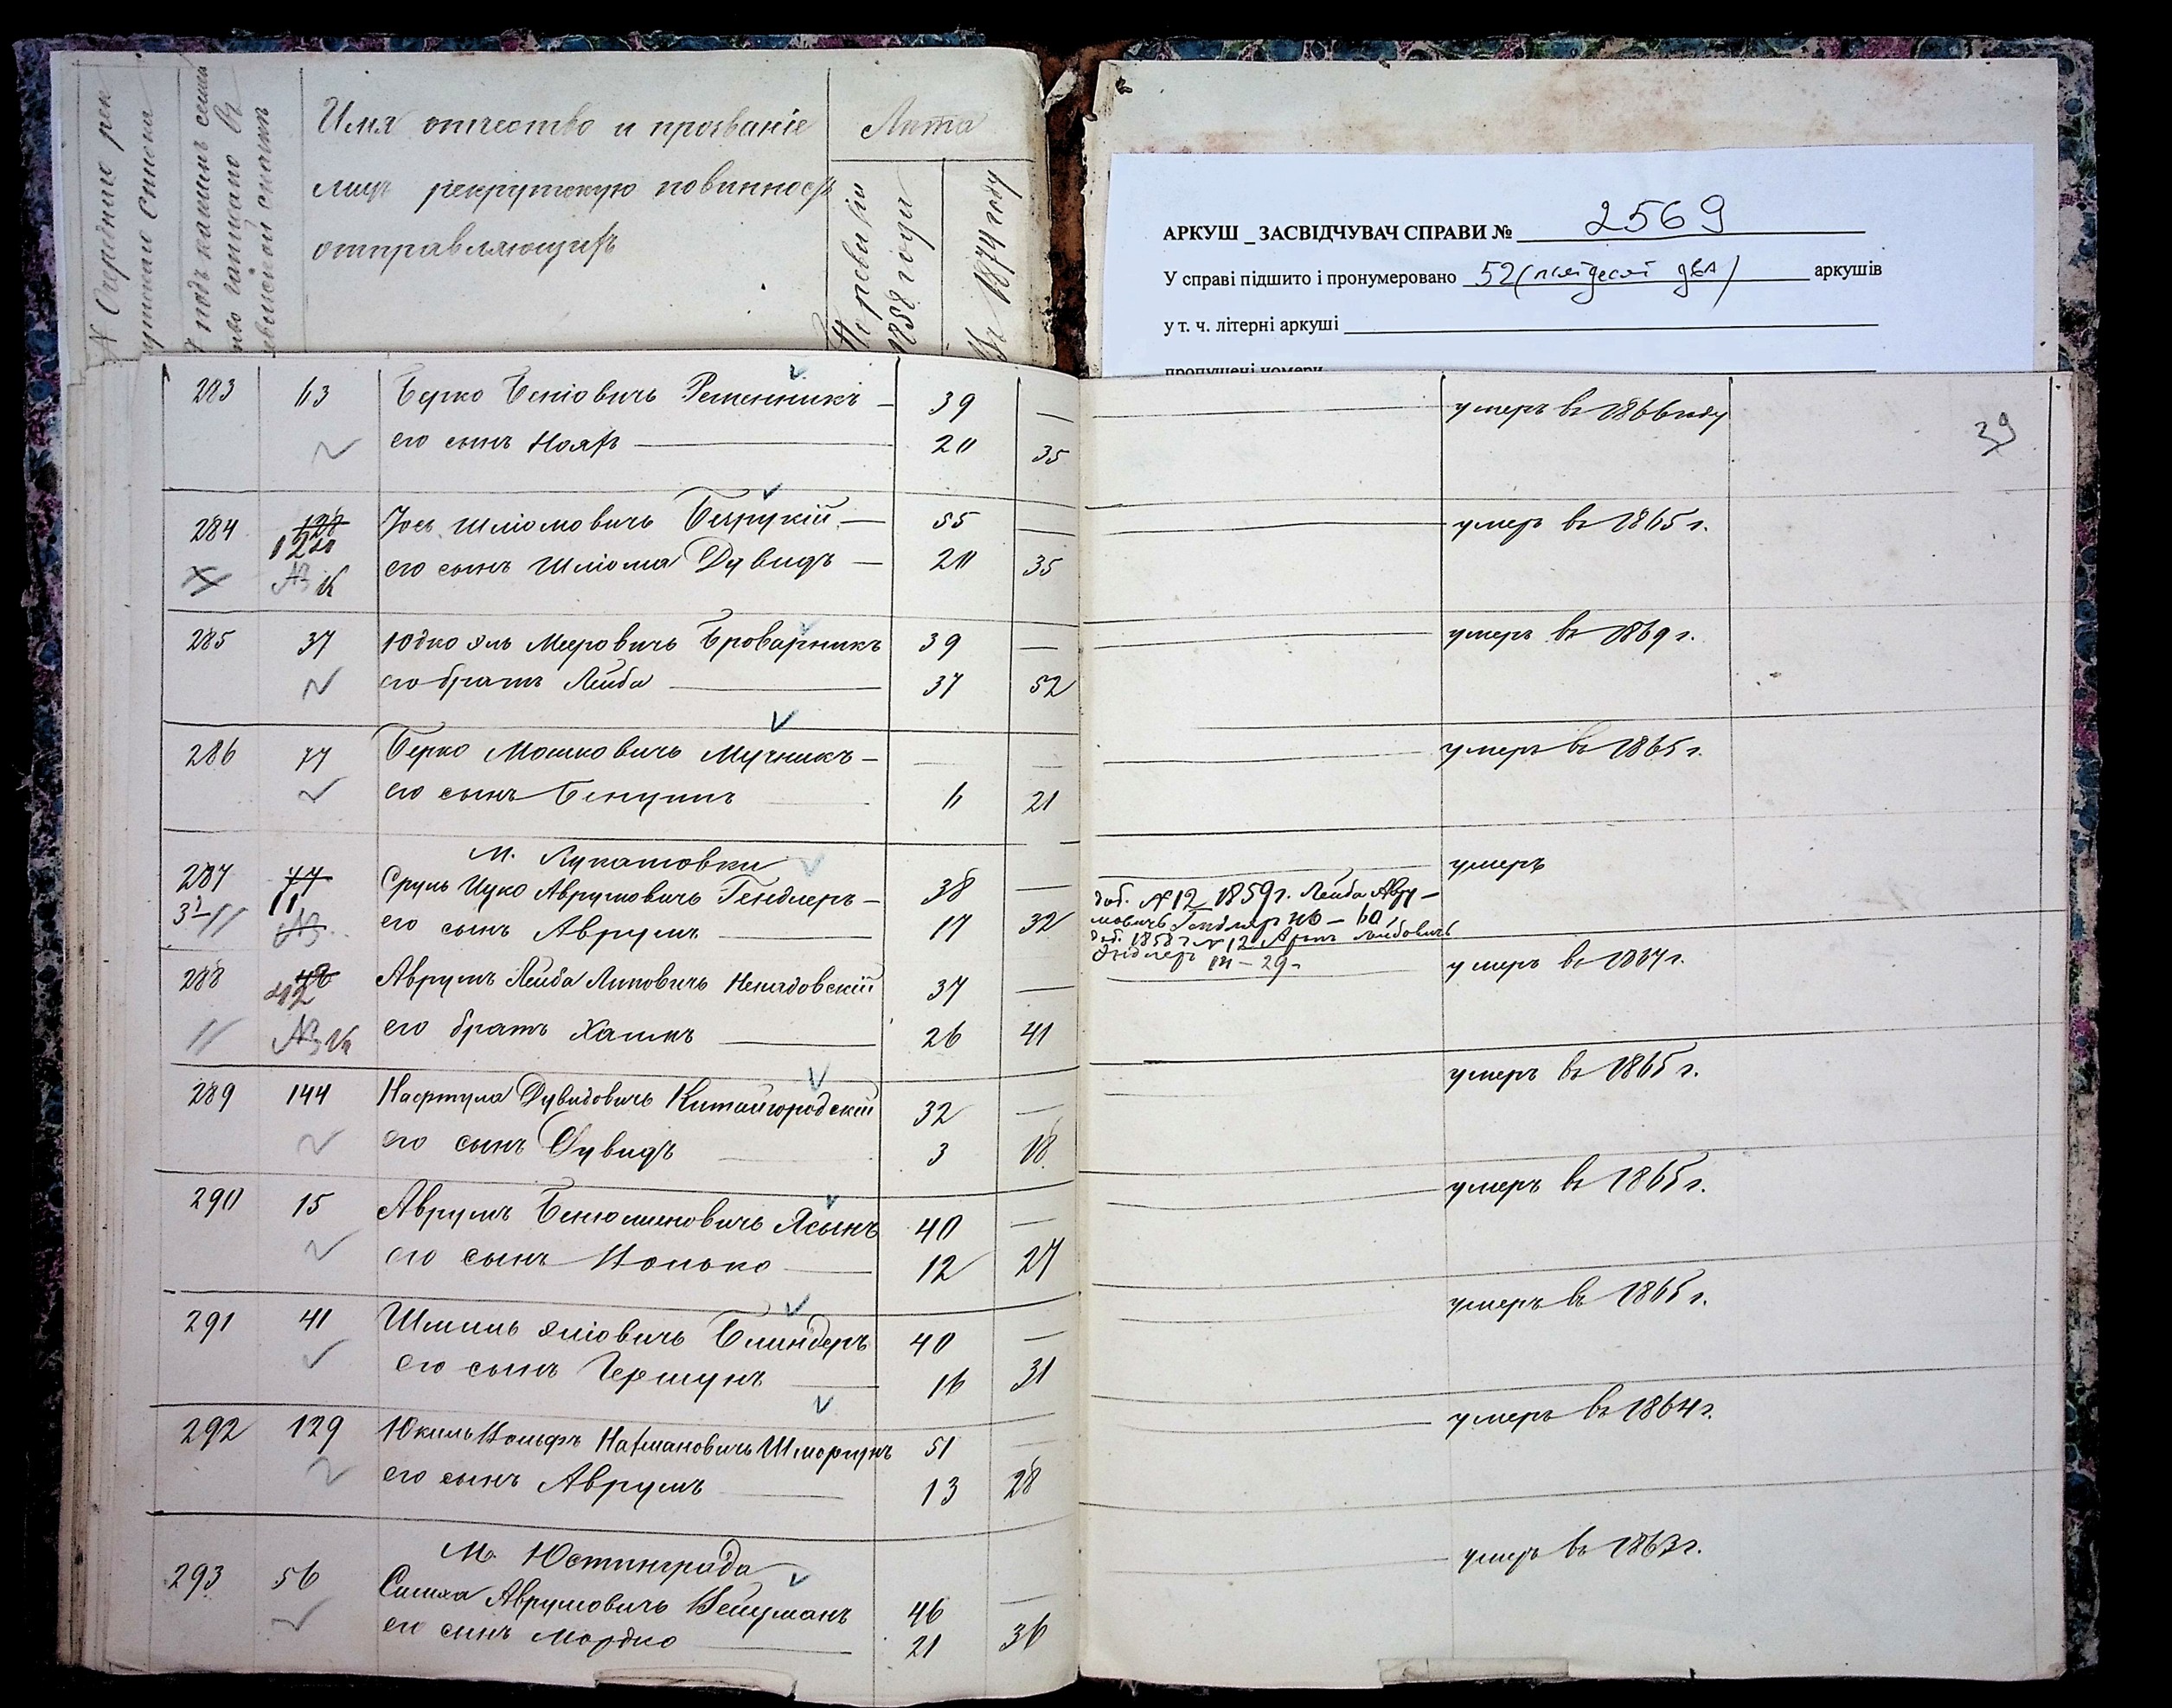 № Очередные рек
рутские списки
№ подъ какимъ семей
ство записано въ
ревизской сказкѣ
Имя отчество и прозваніе
лицъ рекрутскую повинность
отправляющихъ
Лѣта
По ревизіи
1858 года
Въ 1874 году
АРКУШ _ ЗАСВІДЧУВАЧ СПРАВИ № 2569
У справі підшито і пронумеровано 52 (п'ятдесят два) аркушів
у т. ч. літерні аркуші
пропущені номери
39
283 63 Берко Беніовичъ Ременникъ — 39 — умеръ въ 1866 году
его сынъ 20 35
284 128 Іось Шліомовичъ — 55 — умеръ въ 1865 г.
его сынъ Шліома Дувидъ — 20 35
285 37 Юдко Эль Мееровичъ Броварникъ 39 — умеръ въ 1869 г.
его братъ Лейба 37 52
286 77 Берко Мошковичъ Мучникъ — умеръ въ 1865 г.
его сынъ 6 21
М. Лукашовки
287 77 Сруль Ицко Аврумовичъ Гендлеръ — 38 — умеръ
11 его сынъ Аврумъ 17 32
доб. № 12 1859 г. Лейба Авру-
мовичъ Гендлеръ 46 — 60
доб. 1858 г № 12 Лейбовичъ
Гендлеръ 14 — 29
288 Аврумъ Лейба Липовичъ Ненадовскій 37 — умеръ въ 1867 г.
его братъ Хаимъ 26 41
289 144 Нафтула Дувидовичъ Китайгородскій 32 — умеръ въ 1865 г.
его сынъ Дувидъ 3 18
290 15 Аврумъ Бенюминовичъ Ясынъ 40 — умеръ въ 1865 г.
его сынъ Волько 12 27
291 41 Шмиль Эліовичъ Блиндеръ 40 — умеръ въ 1865 г.
его сынъ Гершунъ 16 31
292 129 Юкиль Вольфъ Нахмановичъ 51 — умеръ въ 1864 г.
его сынъ Аврумъ 13 28
М. Юстинграда
293 56 Симха Аврумовичъ Вейцманъ 46 — умеръ въ 1863 г.
его сынъ Мордко 21 36